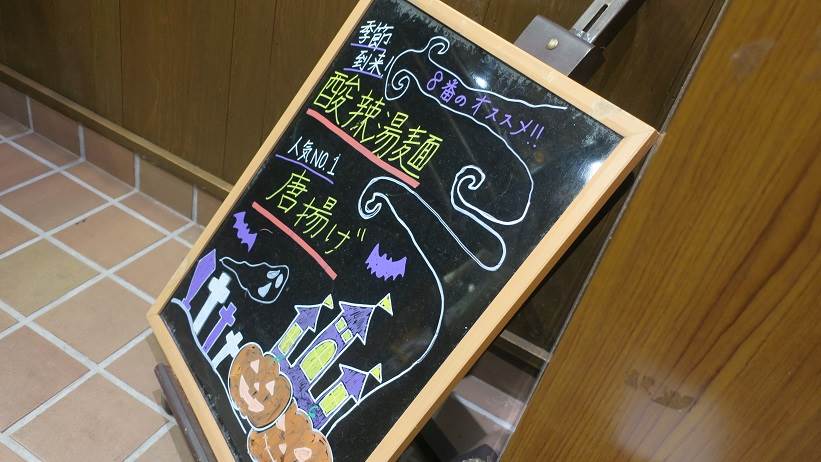 8番のオススメ!!
季節
到来!
酸辣湯麺
人気NO.1
唐揚げ